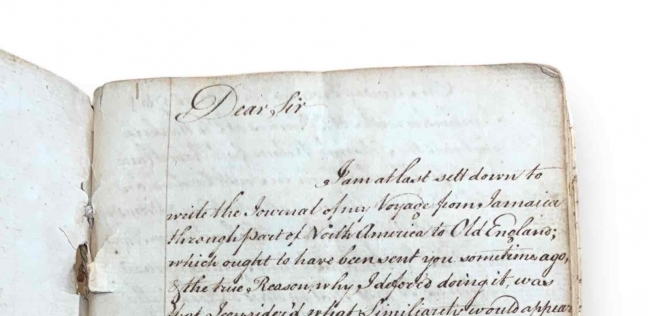 Dear Sir
I am at last sett down to
write the Journal of my Voyage from Jamaica
through part of North America to Old England;
which ought to have been sent you sometime ago,
& the true Reason, why I defer'd doing it, was
that I consider'd what Similiarity would appear